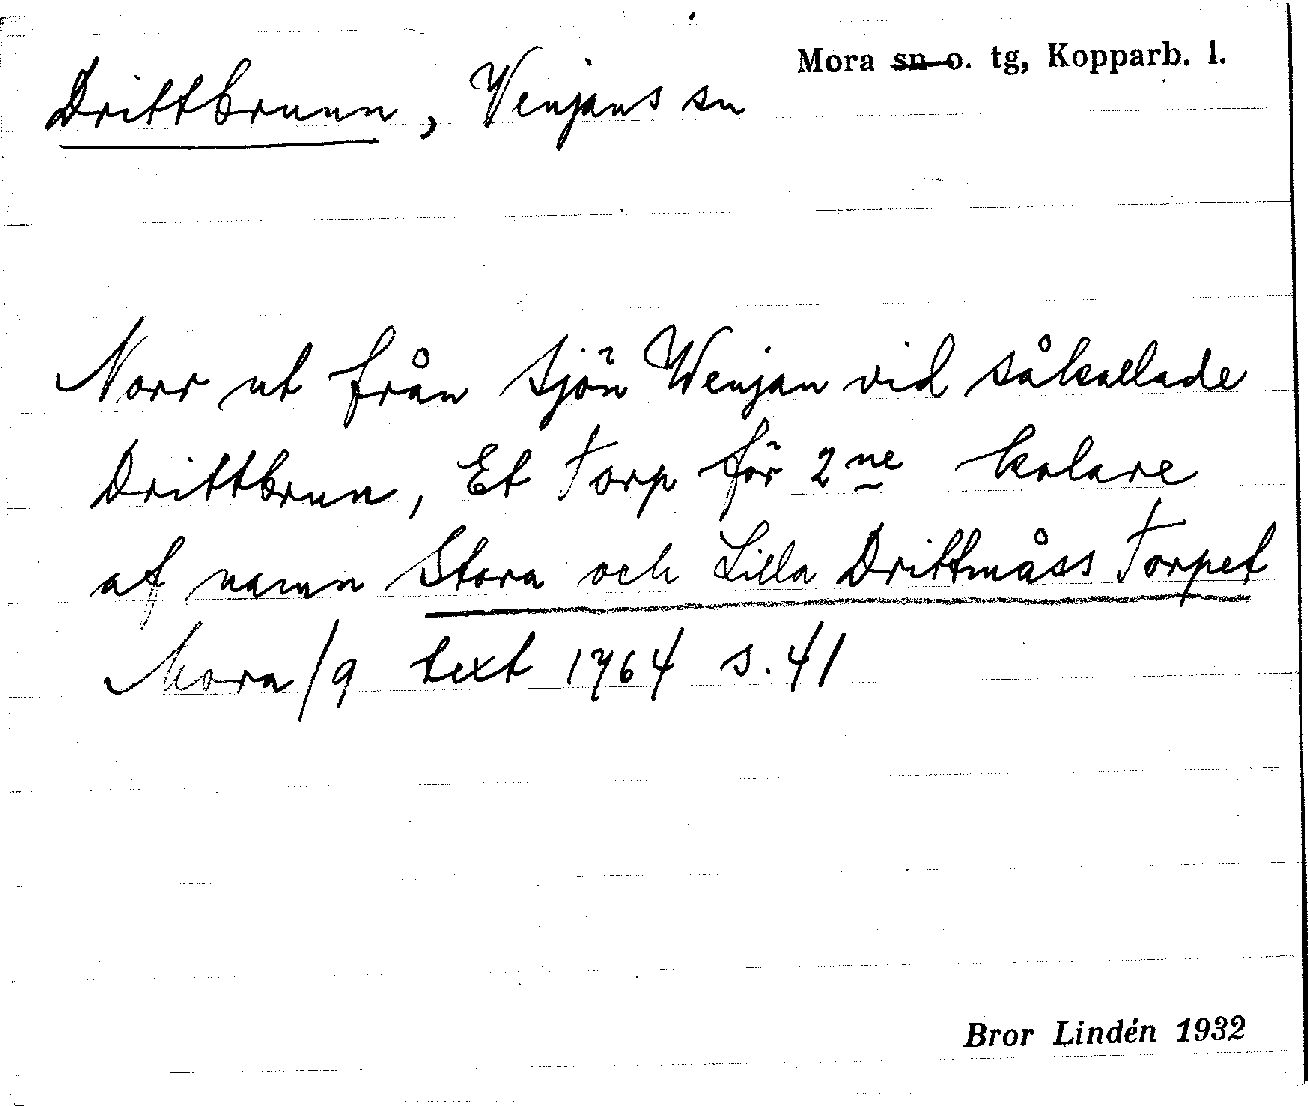 Mora sn o. tg, Kopparb. l.
Drittbrunn, Venjans sn
Norr ut från sjön Wenjan vid såkallade
Drittbrun, Et Torp för 2ne kolare
af namn Stora och Lilla Drittmåss Torpet
Mora/9 text 1764 s. 41
Bror Lindén 1932